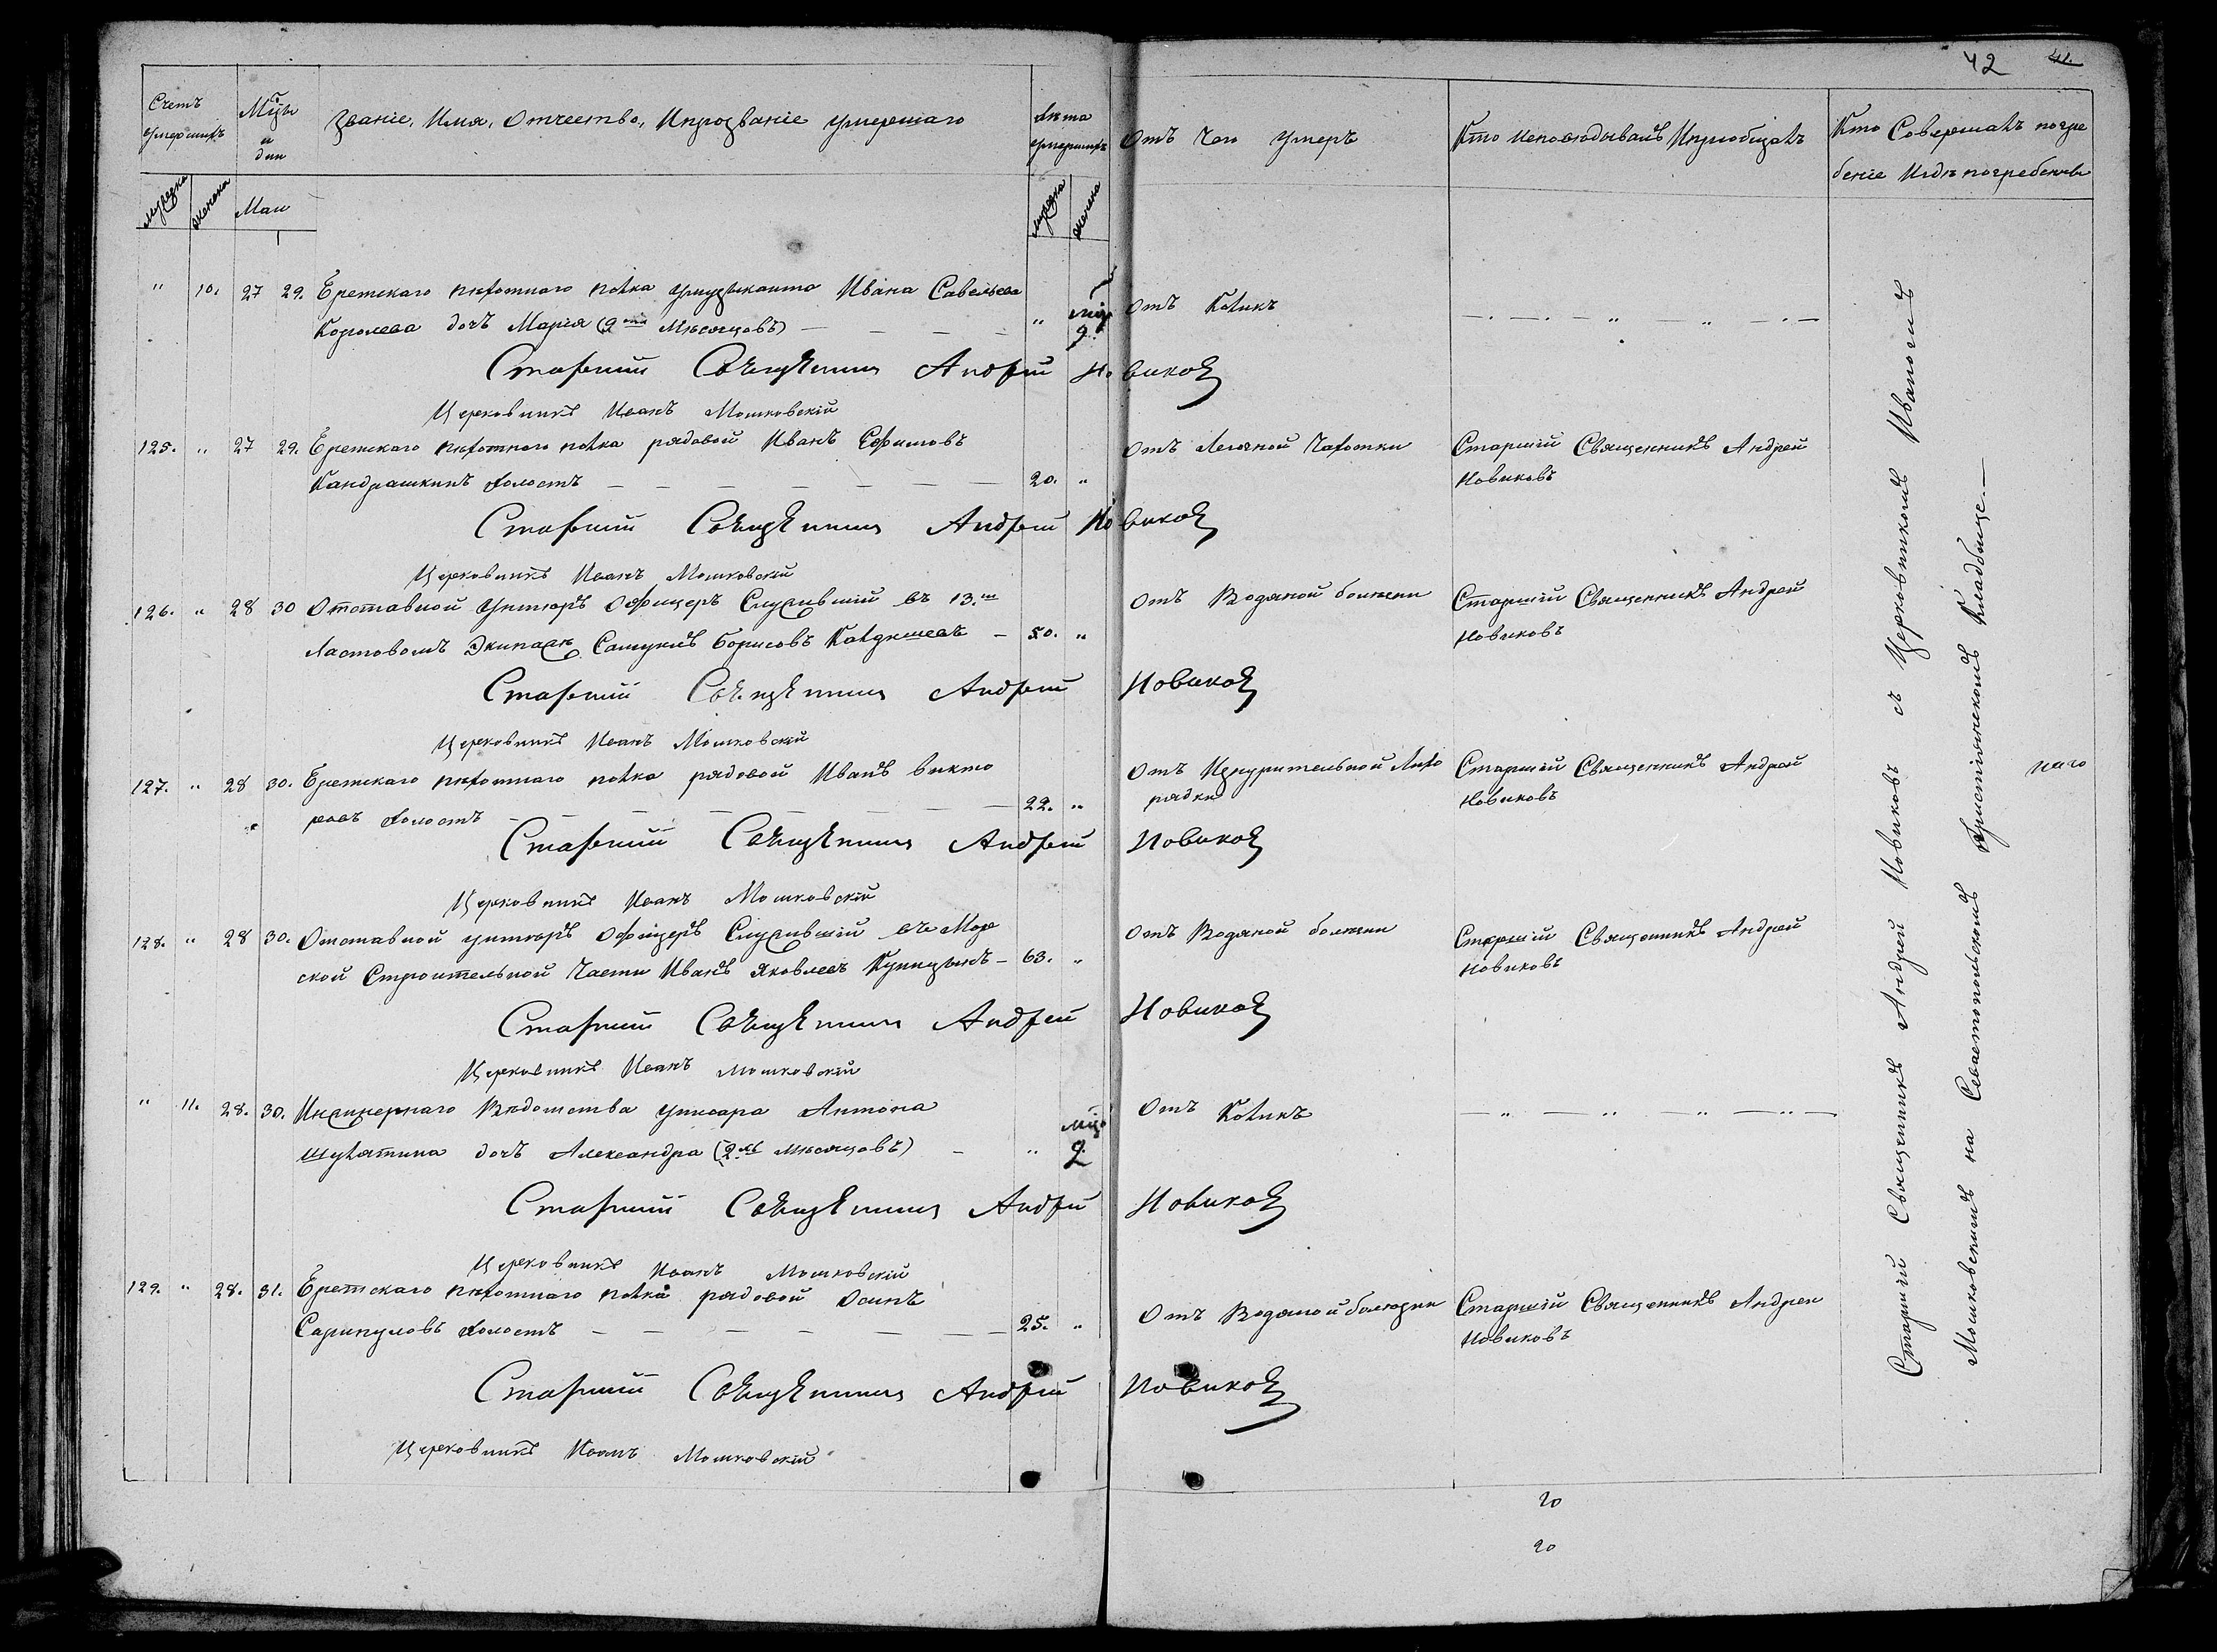 42 41.
Счетъ умершихъ
Мцы и дни
Званіе, Имя, Отчество, Ипрозваніе умершаго
Лѣта умершихъ
Отъ Чего Умеръ
Кто Исповѣдывалъ Ипріобщалъ
Кто Совершалъ погре
беніе Игдѣ погребены
мужеска женска Маи мужеска женска
" 10. 27 29. Брестскаго пѣхотнаго полка Ивана Савельева
Королева дочь Марія (9 ти Мѣсяцовъ) — " 9. Отъ Коликъ
Старшій Священникъ Андрей Новиковъ
Церковникъ Иванъ Мошковскій
125. " 27 29. Брестскаго пѣхотнаго полка рядовой Иванъ Ефимовъ
Кандрашкинъ холостъ — 20. " Отъ Легочной Чахотки Старшій Священникъ Андрей
Новиковъ
Старшій Священникъ Андрей Новиковъ
Церковникъ Иванъ Мошковскій
126. " 28 30 Отставной Унтеръ Офицеръ Служившій въ 13.м
Ластовомъ Экипажѣ Самуилъ Борисовъ — 50. " Отъ Водяной болезни Старшій Священникъ Андрей
Новиковъ
Старшій Священникъ Андрей Новиковъ
Церковникъ Иванъ Мошковскій
127. " 28 30. Брестскаго пѣхотнаго полка рядовой Иванъ Викто
ровъ холостъ — 22. " Отъ Изнурительной Лихо
радки Старшій Священникъ Андрей
Новиковъ
Старшій Священникъ Андрей Новиковъ
Церковникъ Иванъ Мошковскій
128. " 28 30. Отставной унтеръ Офицеръ Служившій въ Мор
ской Строительной Части Иванъ Яковлевъ Купицынъ — 63. " Отъ Водяной болезни Старшій Священникъ Андрей
Новиковъ
Старшій Священникъ Андрей Новиковъ
Церковникъ Иванъ Мошковскій
" 11. 28. 30. Инженернаго Вѣдомства Антона
Шулятина дочь Александра (2хъ мѣсяцовъ) — " 2 Отъ Коликъ
Старшій Священникъ Андрей Новиковъ
Церковникъ Иванъ Мошковскій
129. " 28. 31. Брестскаго пѣхотнаго полка рядовой Осипъ
Сарипуловъ холостъ — 25. " Отъ Водяной болезни Старшій Священникъ Андрей
Новиковъ
Старшій Священникъ Андрей Новиковъ
Церковникъ Иванъ Мошковскій
Старшій Священникъ Андрей Новиковъ съ Церковникомъ Иваномъ
Мошковскимъ на Севастопольскомъ Христіянскомъ Кладбище. —
20
20